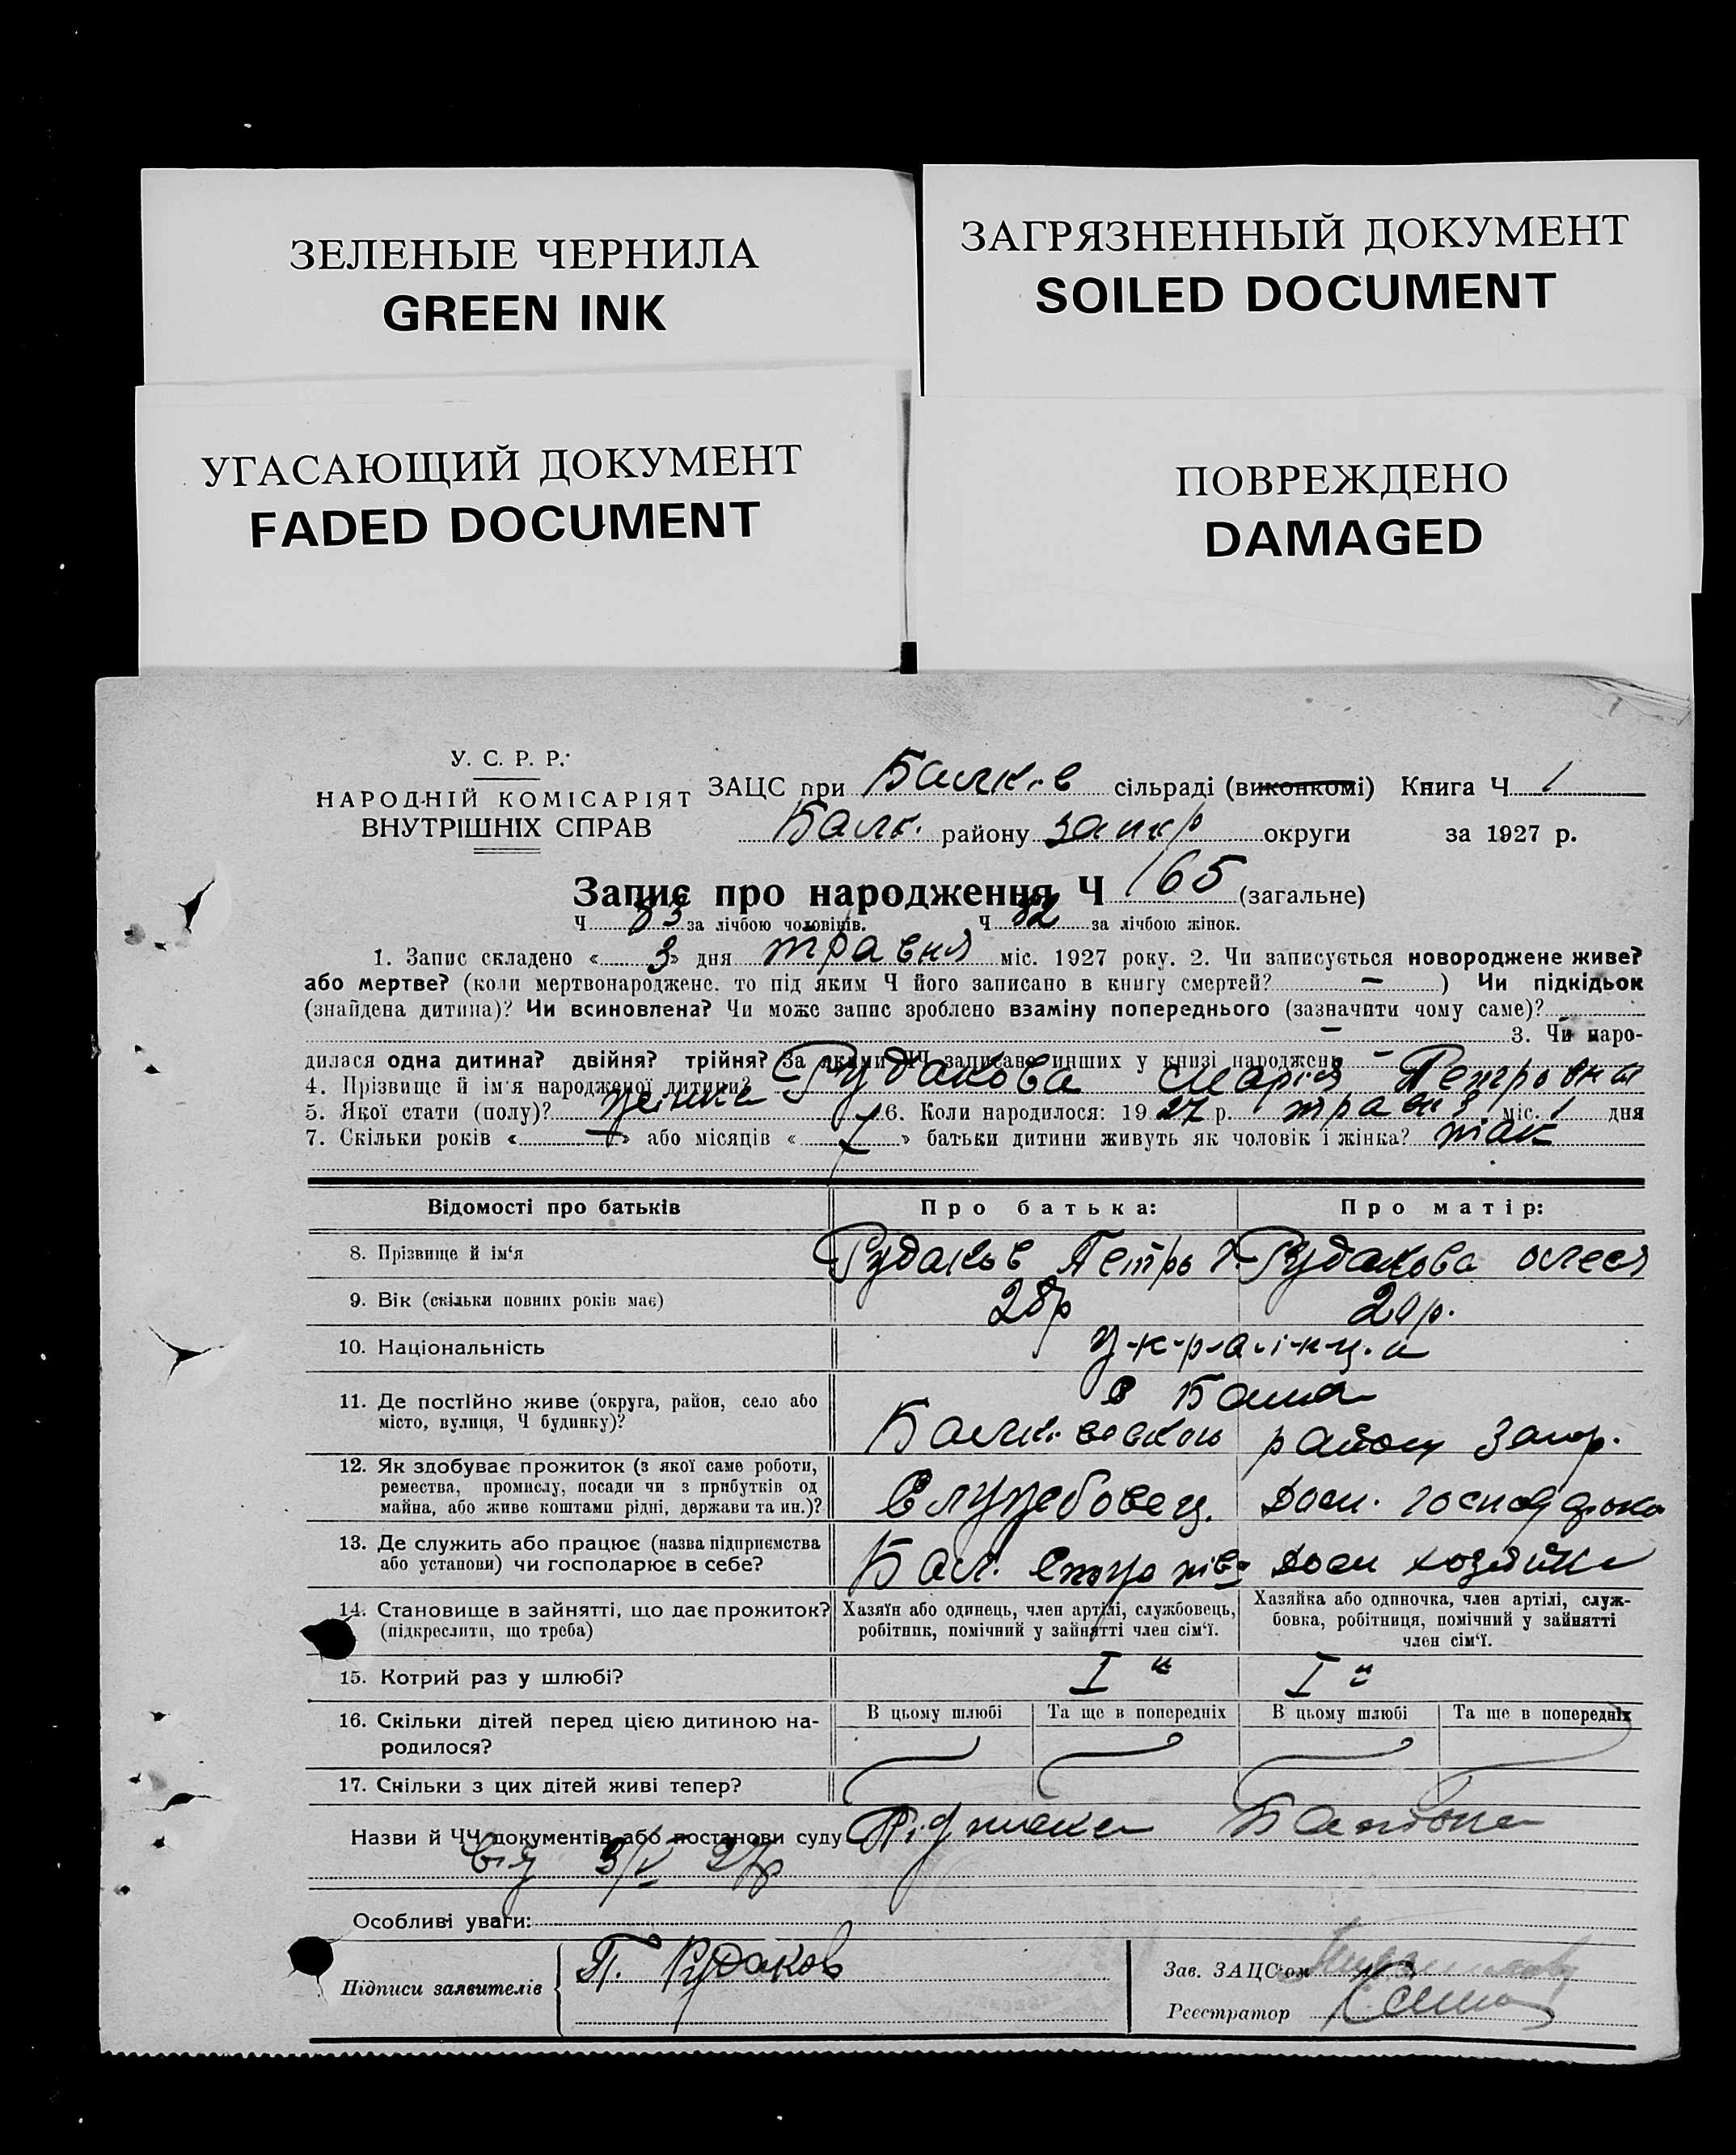 ЗЕЛЕНЫЕ ЧЕРНИЛА
GREEN INK
ЗАГРЯЗНЕННЫЙ ДОКУМЕНТ
SOILED DOCUMENT
УГАСАЮЩИЙ ДОКУМЕНТ
FADED DOCUMENT
ПОВРЕЖДЕНО
DAMAGED
У. С. Р. Р.
НАРОДНІЙ КОМІСАРІЯТ
ВНУТРІШНІХ СПРАВ
ЗАЦС при Балків сільраді (виконкомі) Книга Ч 1
Балк. району запор округи за 1927 р.
Запис про народження Ч 165 (загальне)
Ч 83 за лічбою чоловіків. Ч 82 за лічбою жінок.
1. Запис складено « 3 » дня травня міс. 1927 року. 2. Чи записується новороджене живе?
або мертве? (коли мертвонароджене, то під яким Ч його записано в книгу смертей? — ) Чи підкідьок
(знайдена дитина)? Чи всиновлена? Чи може запис зроблено взаміну попереднього (зазначити чому саме)?
— 3. Чи наро-
дилася одна дитина? двійня? трійня? За якими ЧЧ записано инших у книзі народжень —
4. Прізвище й ім'я народженої дитини? Рудакова Марія Петровна
5. Якої стати (полу)? жінка 6. Коли народилося: 1927 р. травня міс. 1 дня
7. Скільки років « » або місяців « » батьки дитини живуть як чоловік і жінка? так
Відомості про батьків Про батька: Про матір:
8. Прізвище й ім'я Рудаков Петро Рудакова олеся
9. Вік (скільки повних років має) 28р 20р.
10. Національність у-к-р-а-ї-н-ц-и
11. Де постійно живе (округа, район, село або
місто, вулиця, Ч будинку)?
Балківською району Запор.
12. Як здобуває прожиток (з якої саме роботи,
ремества, промислу, посади чи з прибутків од
майна, або живе коштами рідні, держави та ин.)?
Служебовец. Дом. господарка
13. Де служить або працює (назва підприємства
або установи) чи господарює в себе?
Бал. Дом хозяйка
14. Становище в зайнятті, що дає прожиток?
(підкреслити, що треба)
Хазяїн або одинець, член артілі, службовець,
робітник, помічний у зайнятті член сім'ї.
Хазяйка або одиночка, член артілі, служ-
бовка, робітниця, помічний у зайнятті
член сім'ї.
15. Котрий раз у шлюбі? I " I "
16. Скільки дітей перед цією дитиною на-
родилося?
В цьому шлюбі Та ще в попередніх В цьому шлюбі Та ще в попередніх
17. Скільки з цих дітей живі тепер?
Назви й ЧЧ документів або постанови суду
від 3/V 27р
Особливі уваги:
Підписи заявителів П. Рудаков
Зав. ЗАЦС'ом
Реєстратор